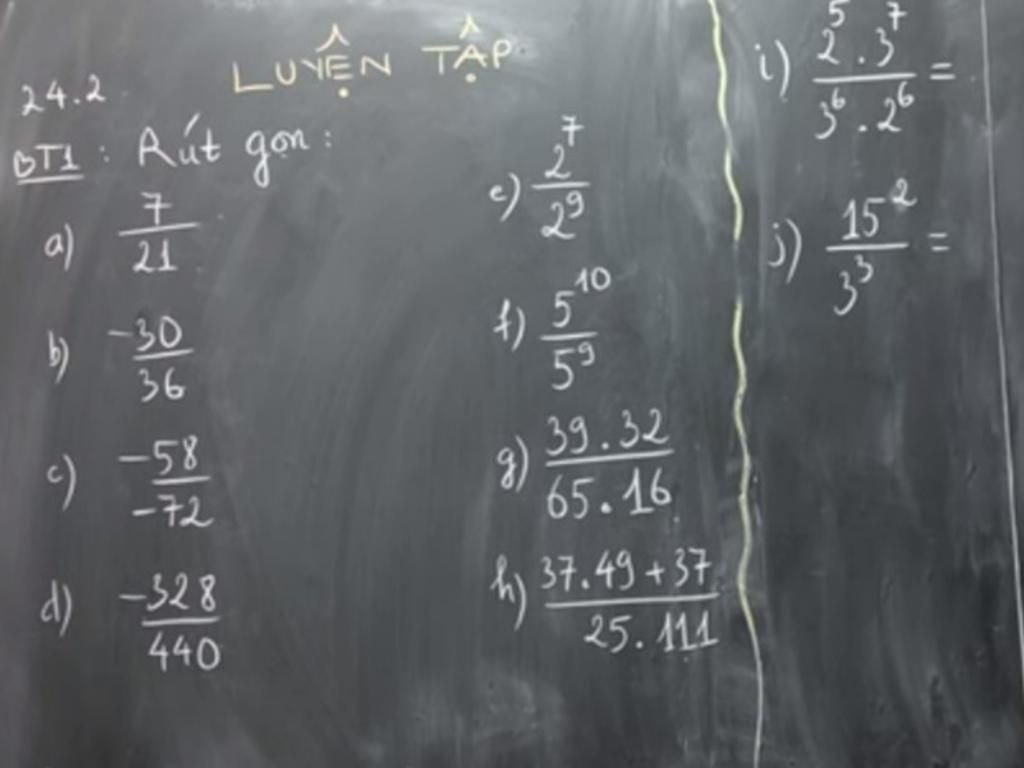 LUYỆN TẬP
24.2
BT1 : Rút gọn :
a) 7/21
b) -30/36
c) -58/-72
d) -328/440
e) 2^7/2^9
f) 5^10/5^9
g) 39.32/65.16
h) 37.49+37/25.111
i) 2^5.3^7/3^6.2^6 =
j) 15^2/3^3 =